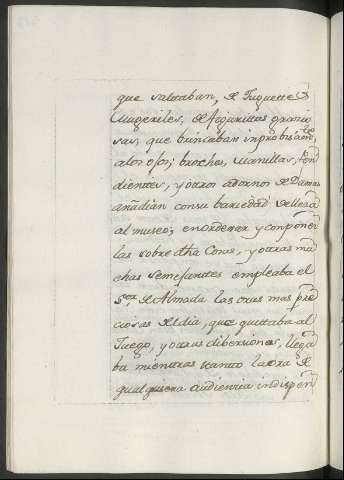 que saltaban, de Juguettes
Mugeriles, de figurittas gracio
sas, que brincaban improbisam.te,
a los ojos; broches, manillas, Pen
dientes, y otros adornos de Damas
añadian con su bariedad velleza
al museo; en ordenar y componer
las sobre dha Cosas, y otras mu
chas semejantes empleaba el
S.or de Almada las oras mas pre
ciosas del dia, que quittaba al
Juego, y otras dibersiones, llega
ba mientras tanto la ora de
qualquiera audiencia indispen